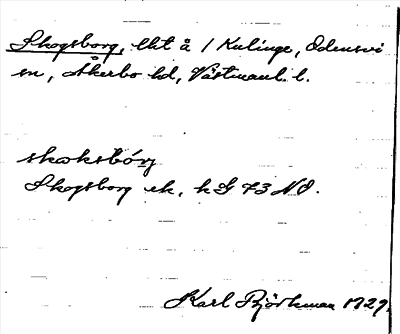 Skogsborg, lht å 1 Kulinge, Odensvi
sn, Åkerbo hd, Västmanl. l.
skoksbórj
Skogsborg ek, k G 73 NO.
Karl Björkman 1929.